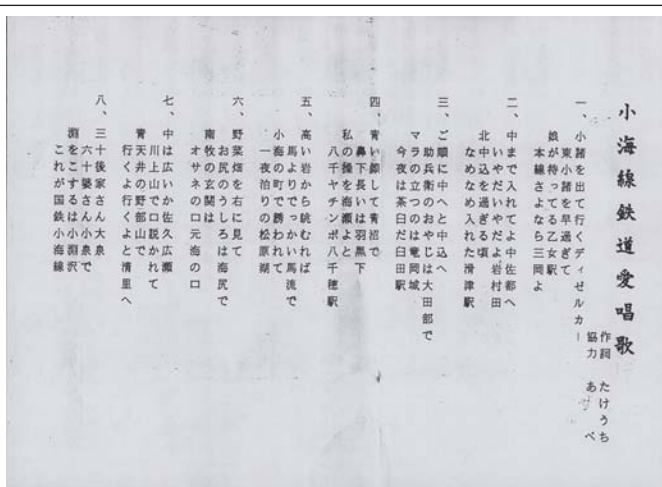 小海線鉄道愛唱歌
作詞　たけうち
協力　あべ
一、小諸を出て行くディゼルカー
東小諸を早過ぎて
娘が持ってる乙女駅
本線さよなら三岡よ
二、中まで入れてよ中佐都へ
いやだいやだよ岩村田
北中込を過ぎる頃
なめなめ入れた滑津駅
三、ご順に中へと中込へ
助兵衛のおやじは大田部で
マラの立つのは竜岡城
今夜は茶臼だ臼田駅
四、青い顔して青沼で
鼻下長いは羽黒下
私の操を海瀬よと
八千ヤチンポ八千穂駅
五、高い岩から眺むれば
馬よりでっかい馬流で
小海の町で誘われて
一夜泊りの松原湖
六、野菜畑を右に見て
お尻のうしろは海尻で
南牧の玄関は
オサネの口元海の口
七、中は広いか佐久広瀬
川上山で口説かれて
青天井の野部山で
行くよ行くよと清里へ
八、三十後家さん大泉
六十婆さん小泉で
淵をこするは小淵沢
これが国鉄小海線